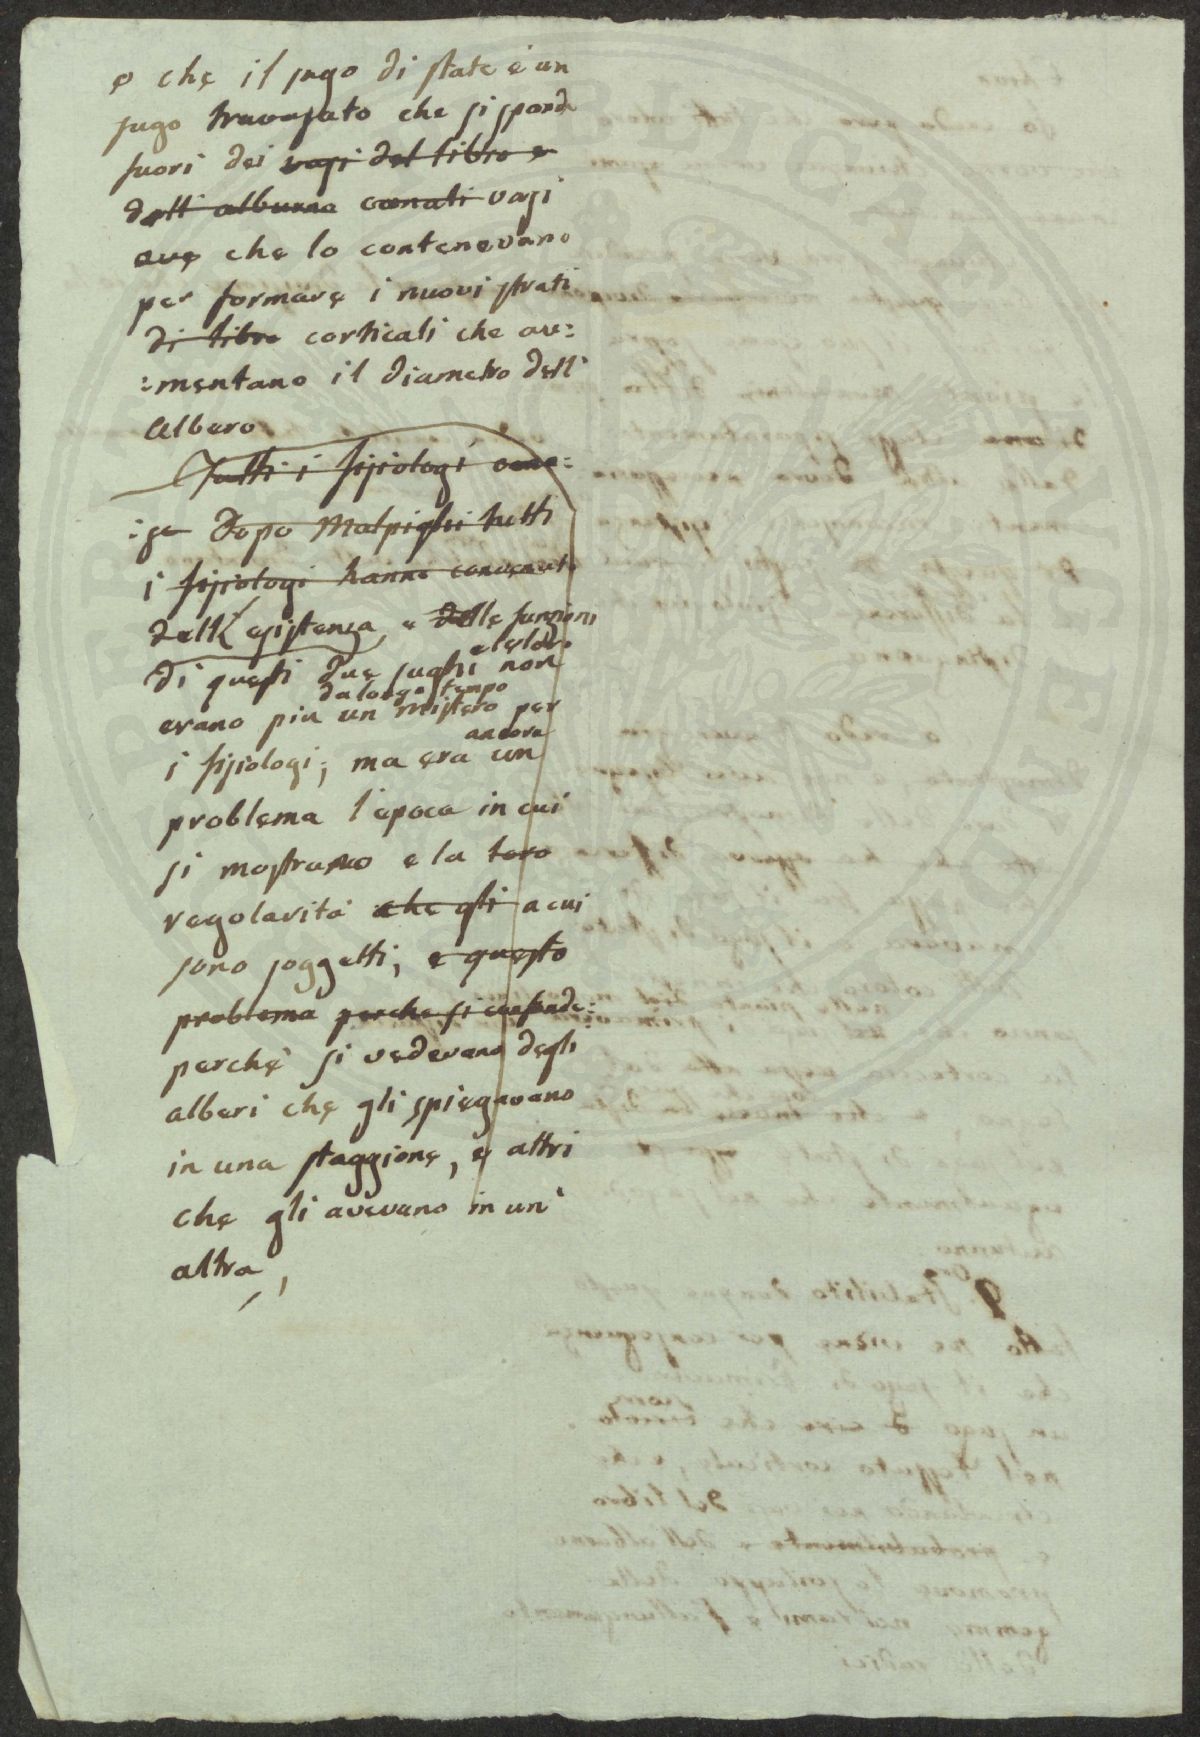 e che il sugo di state è un
sugo travasato che si spande
fuori dei vasi del libro e
dell alburno canali vasi
ove che lo contenevano
per formare i nuovi strati
di libro corticali che au:
:mentano il diametro dell'
albero
Tutti i fisiologi conv:
:ge Dopo Malpighi tutti
i fisiologi hanno convenuto
dell' esistenza, e delle funzioni
e le loro
di questi due sughi non
da lungo tempo
erano piu un mistero per
ancora
i fisiologi; ma era un
problema l'epoca in cui
si mostrano e la loro
regolarità che gli a cui
sono soggetti; e questo
problema perche si confonde:
perchè si vedevano degli
alberi che gli spiegavano
in una staggione, e altri
che gli avevano in un'
altra,